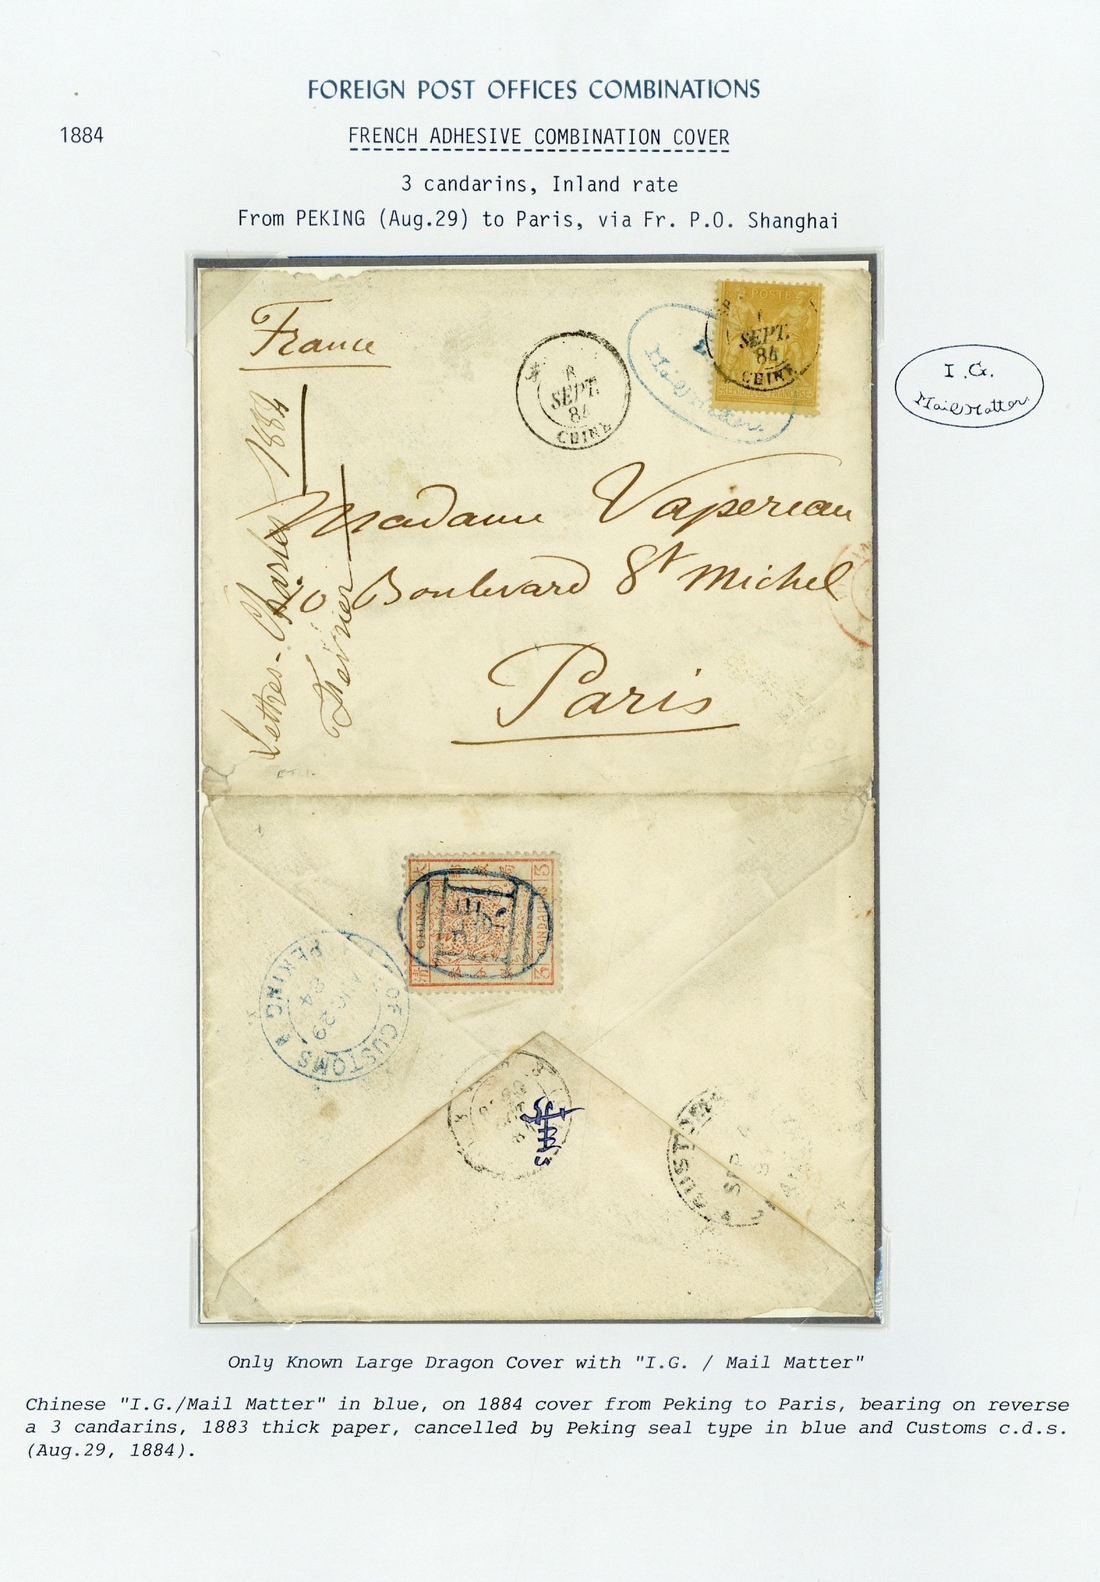 FOREIGN POST OFFICES COMBINATIONS
1884
FRENCH ADHESIVE COMBINATION COVER
3 candarins, Inland rate
From PEKING (Aug.29) to Paris, via Fr. P.O. Shanghai
France
8
SEPT.
84
CHINE
Mail Matter.
POSTE
SEPT.
84
CHINE
I.G.
Mail Matter.
Lettres - Charles 1884
Madame Vapereau
70 Boulevard St Michel
Paris
大
清
CHINA
CANDARINS
3
3
OF CUSTOMS
PEKING
AUG 29
84
CUSTOMS
SEP
Only Known Large Dragon Cover with "I.G. / Mail Matter"
Chinese "I.G./Mail Matter" in blue, on 1884 cover from Peking to Paris, bearing on reverse
a 3 candarins, 1883 thick paper, cancelled by Peking seal type in blue and Customs c.d.s.
(Aug.29, 1884).